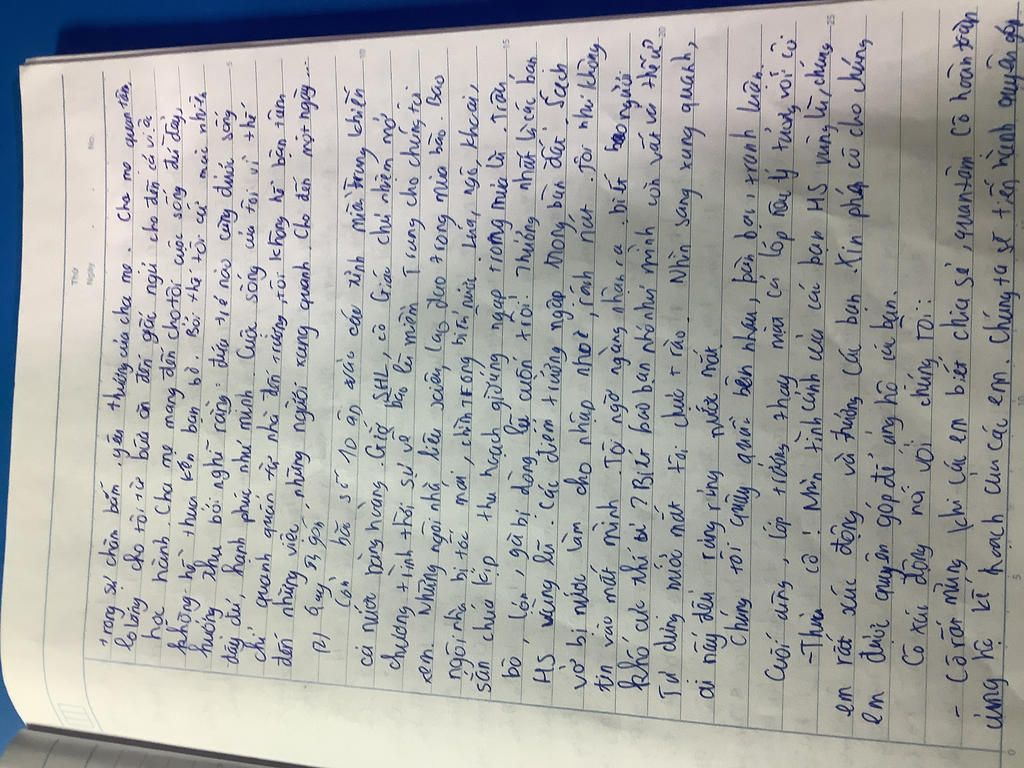 Thứ
Ngày
No.
trong sự chăm bẵm, yêu thương của cha mẹ. Cha mẹ quan tâm,
lo lắng cho tôi từ bữa ăn đến giấc ngủ cho đến cả việc
học hành. Cha mẹ mang đến cho tôi cuộc sống đủ đầy,
không hề thua kém bạn bè. Bởi thế tôi cứ mải mình
hưởng thụ bởi nghĩ rằng: đứa trẻ nào cũng được sống
đầy đủ, hạnh phúc như mình. Cuộc sống của tôi vì thế
chỉ quanh quẩn từ nhà đến trường, tôi không hề bận tâm
đến những việc, những người xung quanh. Cho đến một ngày...
Cơn bão số 10 ập vào các tỉnh miền Trung khiến
cả nước bàng hoàng. Giờ SHL, cô giáo chủ nhiệm mở
chương trình thời sự về bão lũ miền Trung cho chúng tôi
xem. Những ngôi nhà liêu xiêu, lao đao trong mưa bão. Bao
ngôi nhà bị tốc mái, chìm trong biển nước. Lúa, ngô khoai,
sắn chưa kịp thu hoạch giờ úng ngập trong mưa lũ. Trâu
bò, lợn, gà bị dòng lũ cuốn trôi. Thương nhất là các bạn
HS vùng lũ. Các điểm trường ngập trong bùn đất. Sách
vở bị nước làm cho nhập nhoè, rách nát. Tôi như không
tin vào mắt mình. Tôi ngỡ ngàng nhận ra biết bao người
khó cực thế sao? Biết bao bạn nhỏ như mình còn vất vả thế ư?
Tự dưng nước mắt tôi chực trào. Nhìn sang xung quanh,
ai nấy đều rưng rưng nước mắt.
Chúng tôi quây quần bên nhau, bàn bạc, tranh luận.
Cuối cùng, lớp trưởng thay mặt cả lớp nay lý tưởng với cô
- Thưa cô! Nhìn tình cảnh của các bạn HS vùng lũ, chúng
em rất xúc động và thương các bạn. Xin phép cô cho chúng
em được quyên góp để ủng hộ các bạn.
Cô xúc động nói với chúng tôi:
- Cô rất mừng khi các em biết chia sẻ, quan tâm. Cô hoàn toàn
ủng hộ kế hoạch của các em. Chúng ta sẽ tiến hành quyên góp